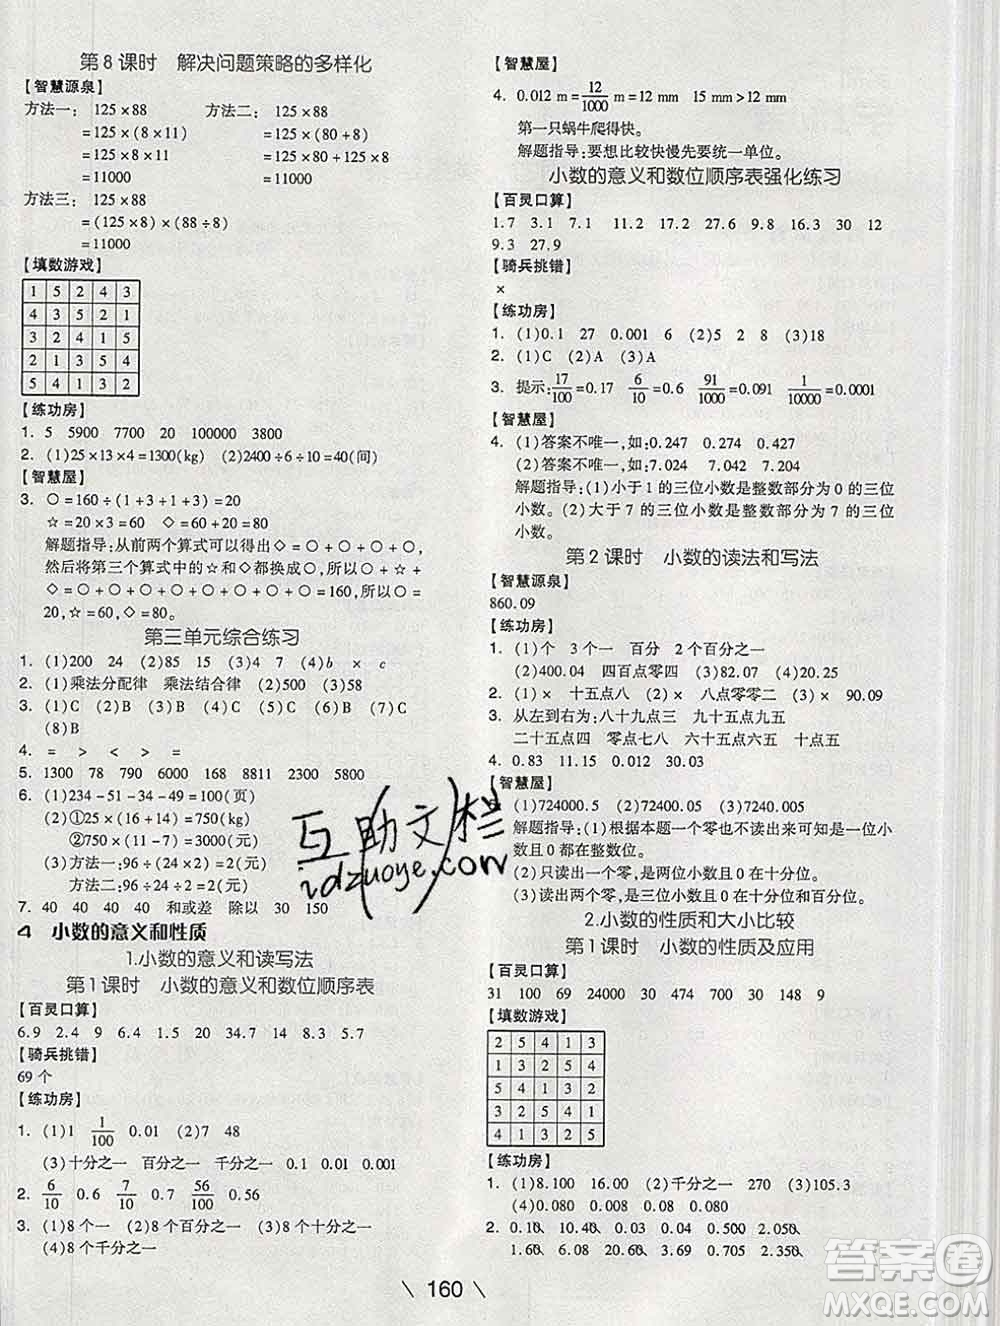 第8课时 解决问题策略的多样化
【智慧源泉】
方法一： 125×88 方法二： 125×88
=125×(8×11) =125×(80+8)
=125×8×11 =125×80+125×8
=11000 =11000
方法三： 125×88
=(125×8)×(88÷8)
=11000
【填数游戏】
1 5 2 4 3
4 3 5 2 1
3 2 4 1 5
2 1 3 5 4
5 4 1 3 2
【练功房】
1. 5 5900 7700 20 100000 3800
2. (1)25×13×4=1300(kg) (2)2400÷6÷10=40(间)
【智慧屋】
3. ○=160÷(1+3+1+3)=20
☆=20×3=60 ◇=20×3=60
解题指导:从前两个算式可以得出◇=○+○+○,
然后将第三个算式中的☆和◇都换成○,所以○+☆+
◇=○+○+○+○+○+○+○+○=160,所以○=20,
☆=60,◇=60。
第三单元综合练习
1. (1)200 24 (2)85 15 (3)4 7 (4)b × c
2. (1)乘法分配律 乘法结合律 (2)500 (3)58
3. (1)C (2)B (3)B (4)C (5)C (6)B (7)C
(8)B
4. = > < > =
5. 1300 78 790 6200 320 1300
6. (1)234-51-34-49=100(页)
(2)①25×(16+14)=750(kg)
②750×(11-7)=3000(元)
(3)方法一:96÷(24×2)=2(元)
方法二:96÷24÷2=2(元)
7. 40 40 40 40 和或差 除以 30 150
4 小数的意义和性质
1.小数的意义和读写法
第1课时 小数的意义和数位顺序表
【百灵口算】
6.9 2.4 9 6.4 1.5 20 34.7 14 8.3 5.7
【骑兵挑错】
69个
【练功房】
1. (1)1 1/100 0.01 (2)7 48
(3)十分之一 百分之一 千分之一 0.1 0.01 0.001
2. 6/10 0.6 7/10 0.7 56/100 0.56
3. (1)8个一 (2)8个百分之一 (3)8个十分之一
(4)8个千分之一
【智慧屋】
4. 0.012 m=12/1000 m=12 mm 15 mm>12 mm
第一只蜗牛爬得快。
解题指导:要想比较快慢先要统一单位。
小数的意义和数位顺序表强化练习
【百灵口算】
1.7 3.1 7.1 11.2 17.2 0.9 9.8 16.3 30 12
9.3 27.9
【骑兵挑错】
×
【练功房】
1. (1)0.1 27 0.001 6 (2)5 2 8 (3)18
2. (1)C (2)A (3)A
3. 提示:17/100=0.17 6/10=0.6 91/1000=0.091 1/10000=0.0001
【智慧屋】
4. (1)答案不唯一,如:0.247 0.274 0.427
(2)答案不唯一,如:7.024 7.042 7.204
解题指导:(1)小于1的三位小数是整数部分为0的三位
小数。(2)大于7的三位小数是整数部分为7的三位
小数。
第2课时 小数的读法和写法
【智慧源泉】
860.09
【练功房】
1. (1)个 3个一 百分 2个百分之一
(2)400.04 四百点零四 (3)5.55
2. (1)× 十五点八 (2)× 八点零零二 (3)× 90.09
3. 从左到右为:八十九点三 九十五点九五
二十五点四 零点七八 六十六点六五 十五点五
4. 0.83 11.15 0.012 30.03
【智慧屋】
(1)724000.5 (2)72400.05 (3)7240.005
解题指导:(1)根据本题一个零也不读出来可知是一位小
数且0都在整数位。
(2)只读出一个零,是两位小数且0在十分位。
(3)读出两个零,是三位小数且0在十分位和百分位。
2.小数的性质和大小比较
第1课时 小数的性质及应用
【百灵口算】
31 100 69 24000 30 474 700 30 148 9
【填数游戏】
2 5 4 1 3
1 4 5 3 2
5 1 3 2 4
3 2 1 4 5
4 3 2 5 1
【练功房】
1. (1)8.100 16.00 (2)千分之一 270 (3)105.3
(4)0.080 0.08 0.080
2. 0.10 10.40 0.04 0.010 0.502 2.050
1.60 6.08 20.60 3.69 0.050 2.500
\ 160 \
互助文栏
idzuoye.com
答案圈
MXQE.COM